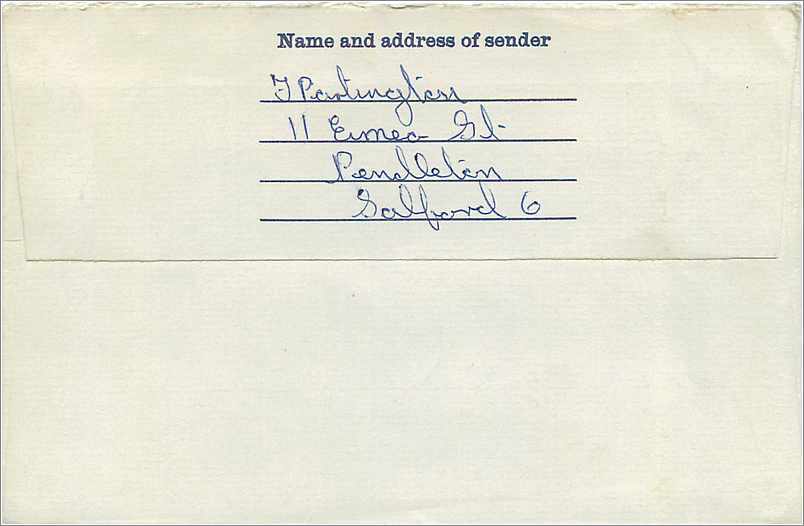 Name and address of sender
F Partington
11 Eimeo St
Pendleton
Salford 6